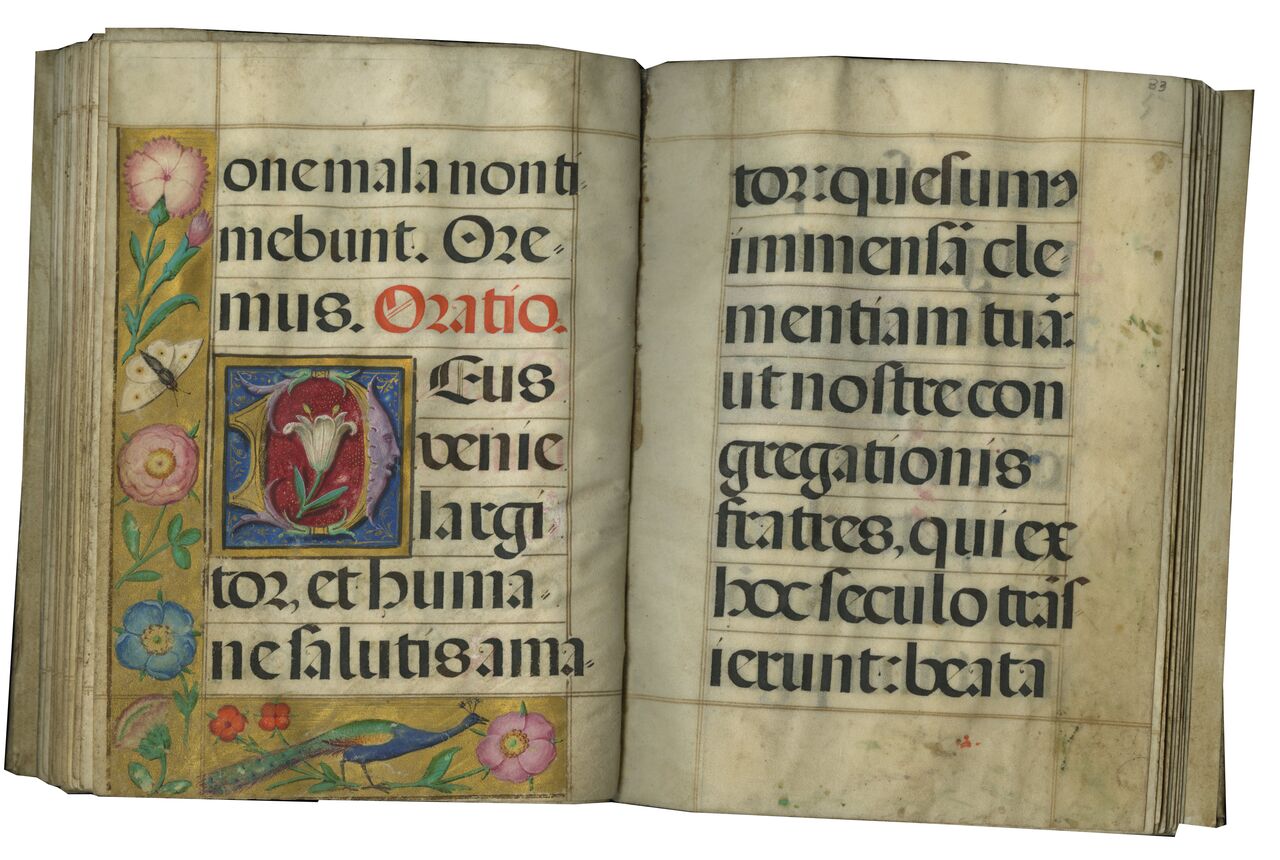 one mala non ti
mebunt. Ore-
mus. Oratio.
DEus
venie
largi
tor, et huma-
ne salutis ama-
33
tor: quesumꝰ
immensā cle-
mentiam tuā:
ut nostre con
gregationis
fratres, qui ex
hoc seculo trās
ierunt: beata